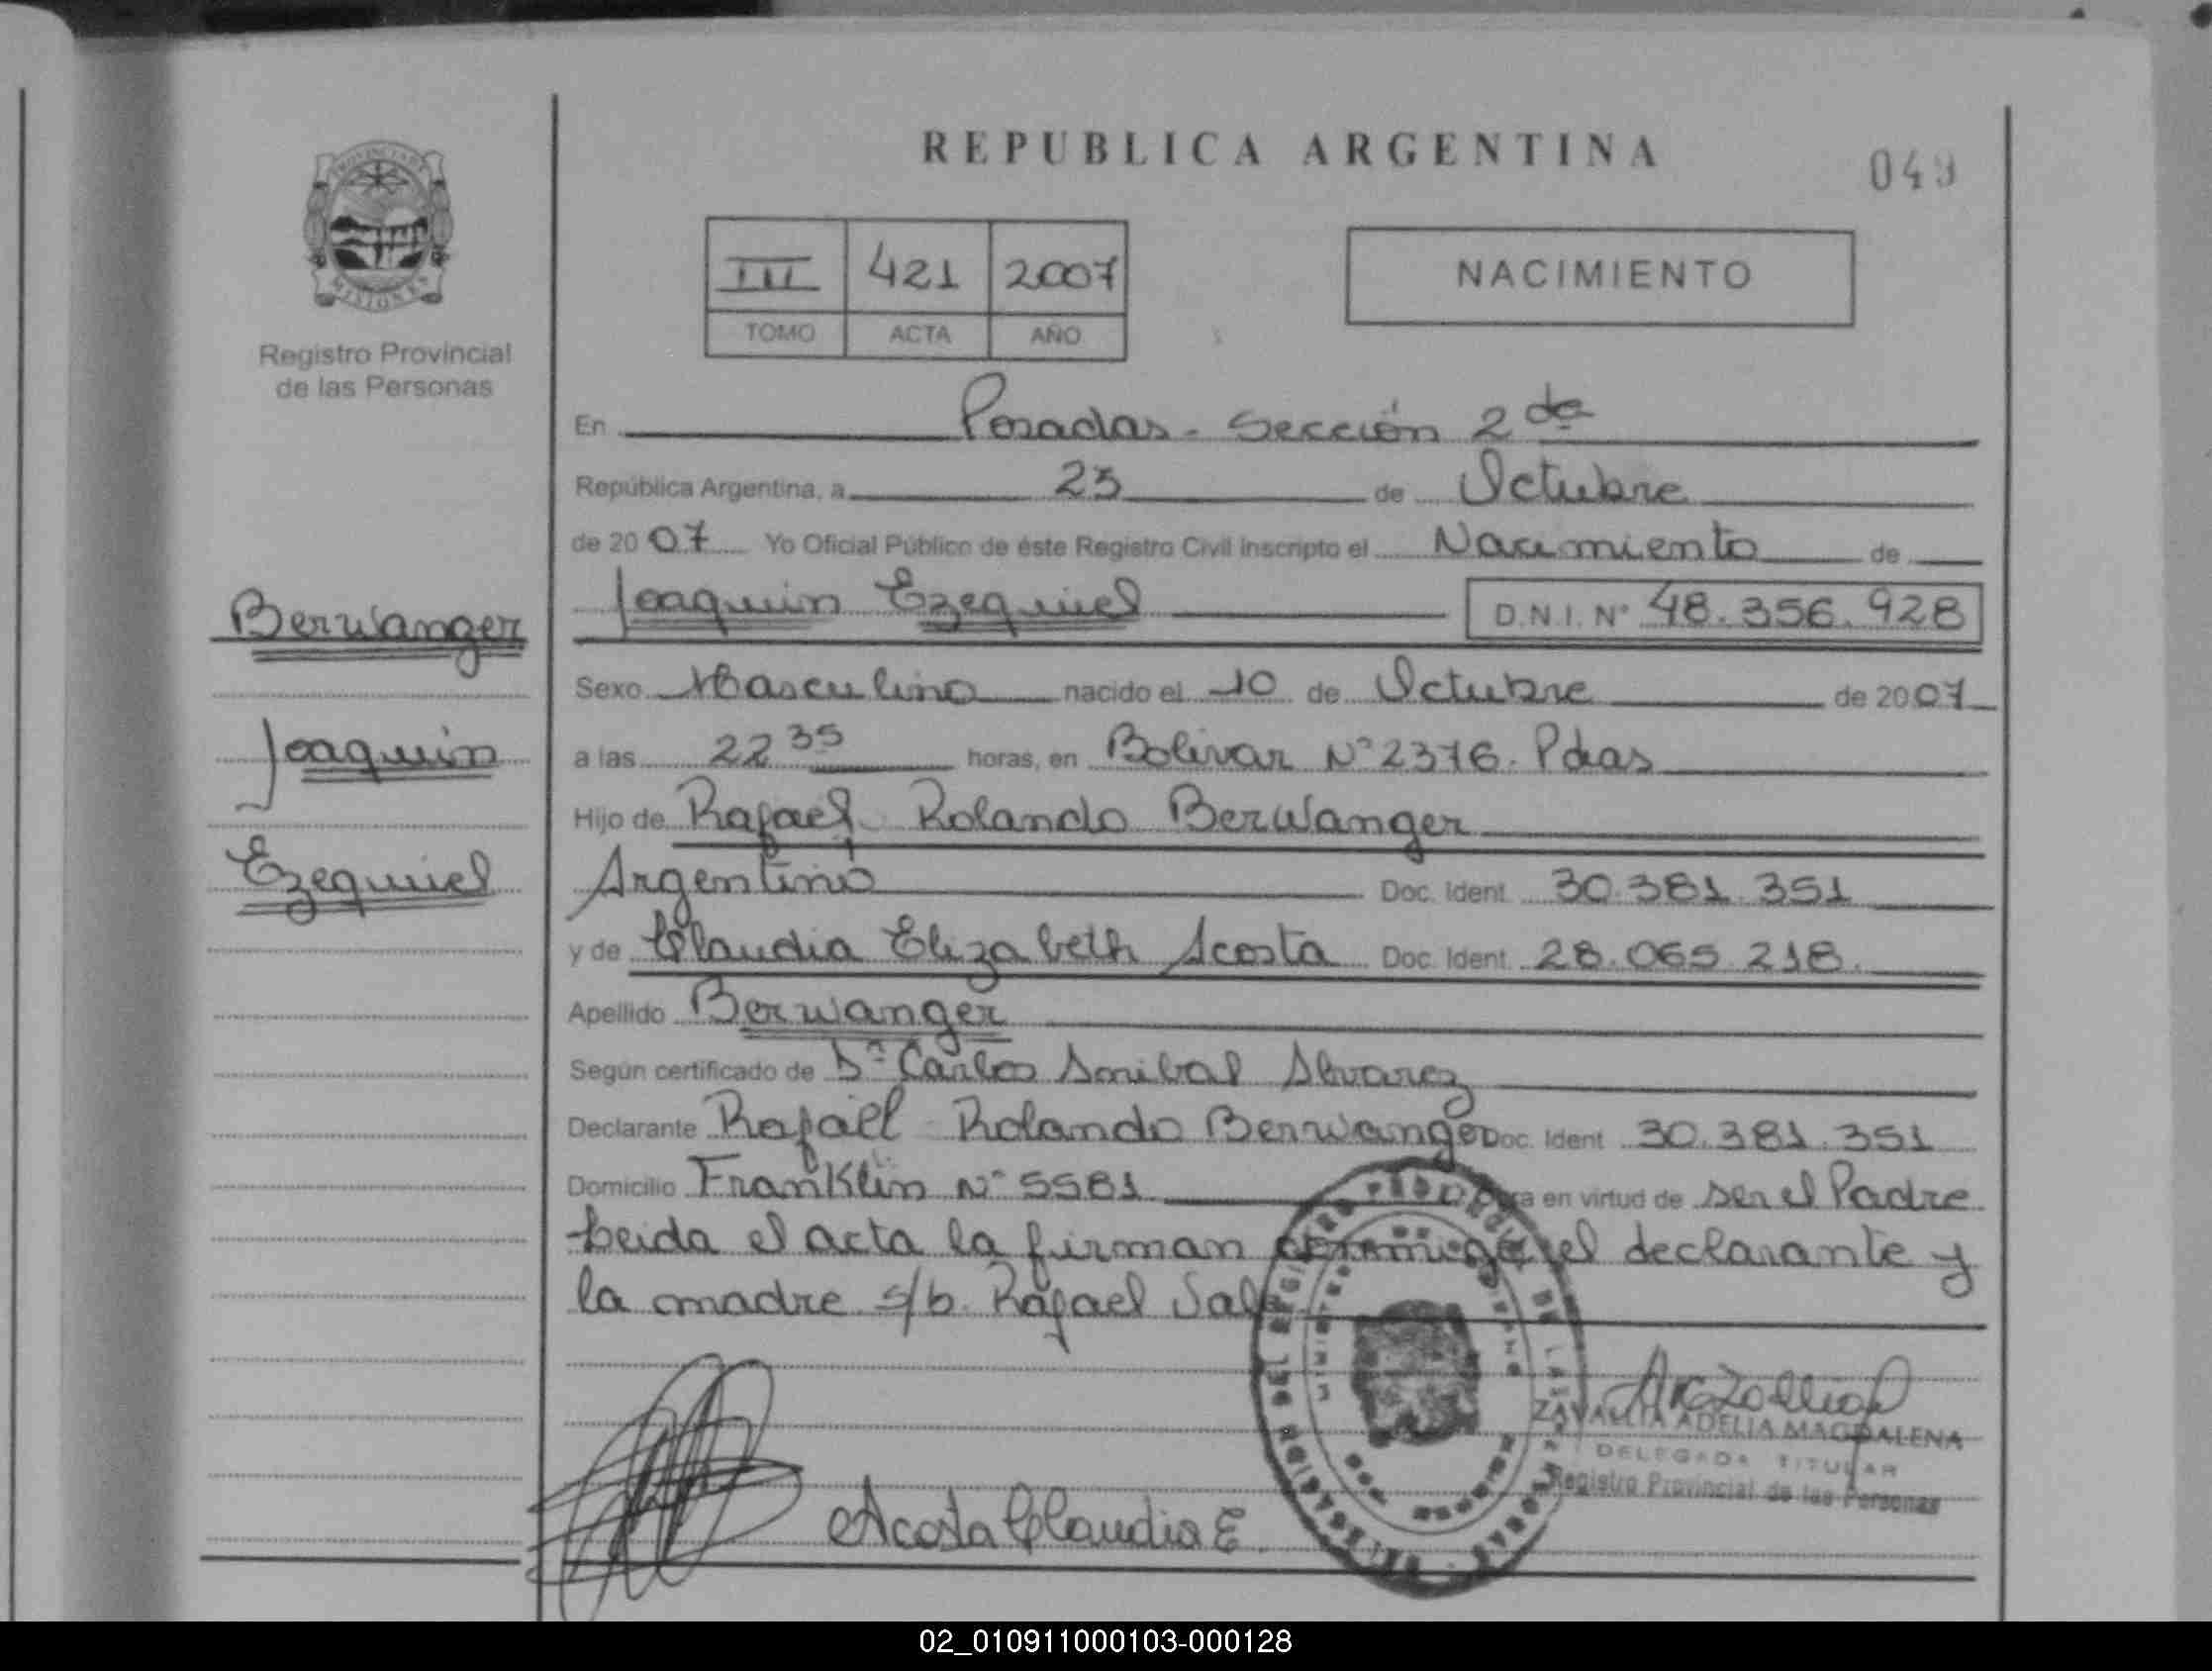 PROVINCIA DE
MISIONES
Registro Provincial
de las Personas
Berwanger
Joaquin
Ezequiel
REPUBLICA ARGENTINA
049
III 421 2007
TOMO ACTA AÑO
NACIMIENTO
En Posadas - Sección 2da
República Argentina, a 23 de Octubre
de 2007 Yo Oficial Público de éste Registro Civil inscripto el Nacimiento de
Joaquin Ezequiel D.N.I. N° 48.356.928
Sexo Masculino nacido el 10 de Octubre de 2007
a las 22 35 horas, en Bolivar N° 2376. Pdas
Hijo de Rafael Rolando Berwanger
Argentino Doc. Ident. 30.381.351
y de Claudia Elizabeth Acosta Doc. Ident. 28.065.218.
Apellido Berwanger
Según certificado de Dr Carlos Anibal Alvarez
Declarante Rafael Rolando Berwanger Doc. Ident. 30.381.351
Domicilio Franklin N° 5581 en virtud de ser el Padre
Leida el acta la firman conmigo el declarante y
la madre s/b. Rafael Vale
ZAVALLIA ADELIA MAGDALENA
DELEGADA TITULAR
Registro Provincial de las Personas
Acosta Claudia E.
02_010911000103-000128